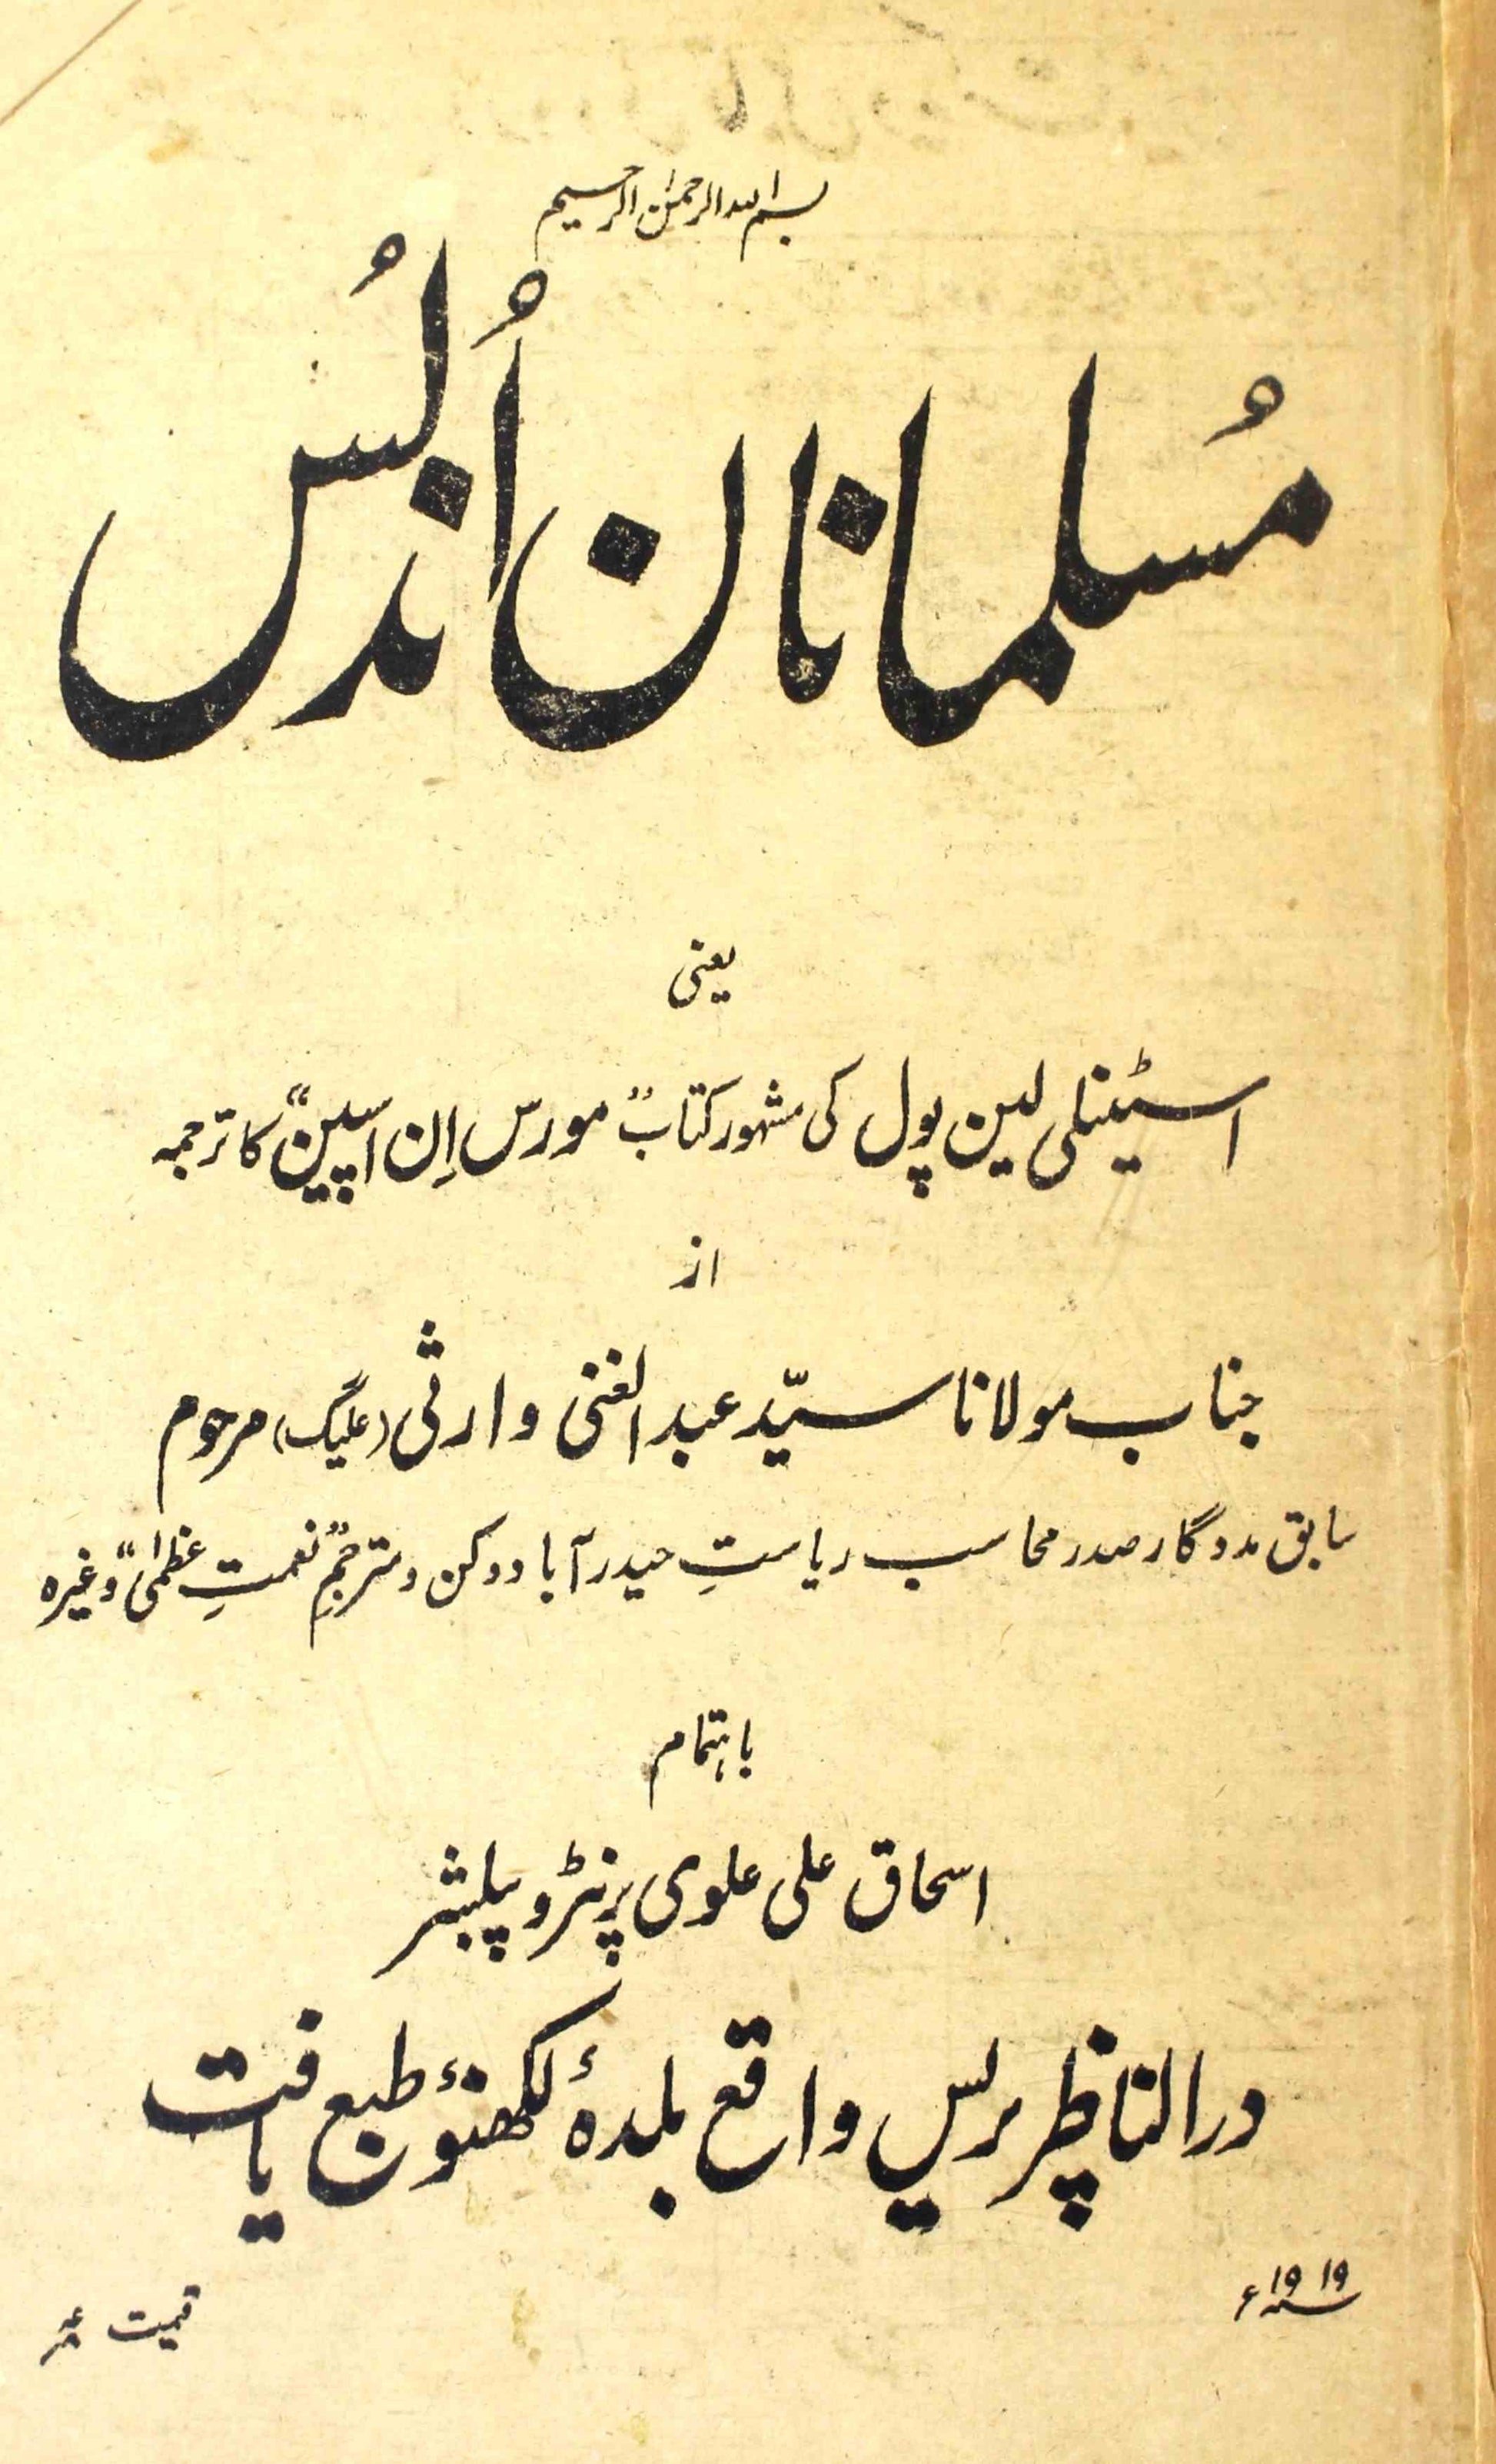 بسم اللہ الرحمٰن الرحیم
مُسلمانان اُندلُس
یعنی
اسٹینلی لین پول کی مشہور کتاب "مورس اِن اسپین" کا ترجمہ
از
جناب مولانا سیّد عبد الغنی وارثی (علیگ) مرحوم
سابق مددگار صدر محاسب ریاستِ حیدرآباد دکن و مترجمِ "نعمتِ عظمیٰ" وغیرہ
باہتمام
اسحاق علی علوی پرنٹر و پبلشر
در الناظر پریس واقع بلدۂ لکھنؤ طبع یافت
۱۹۱۹ء
قیمت